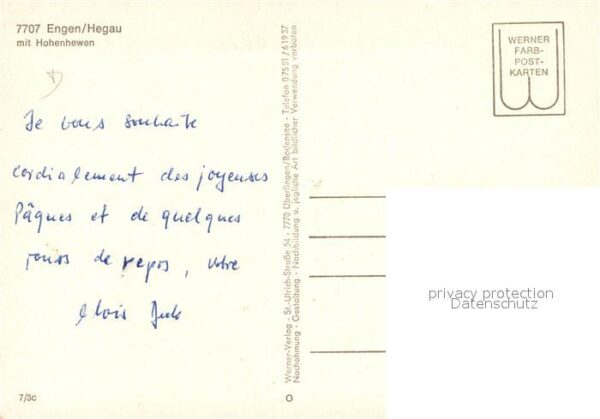 7707 Engen/Hegau
mit Hohenhewen
Je vous souhaite
cordialement des joyeuses
Pâques et de quelques
jours de repos, votre
Alois
Werner-Verlag - St.-Ulrich-Straße 54 - 7770 Überlingen/Bodensee - Telefon 07551/61937
Nachahmung - Gestaltung - Nachbildung u. jegliche Art bildlicher Verwendung verboten
WERNER
FARB-
POST-
KARTEN
privacy protection
Datenschutz
7/3c
O